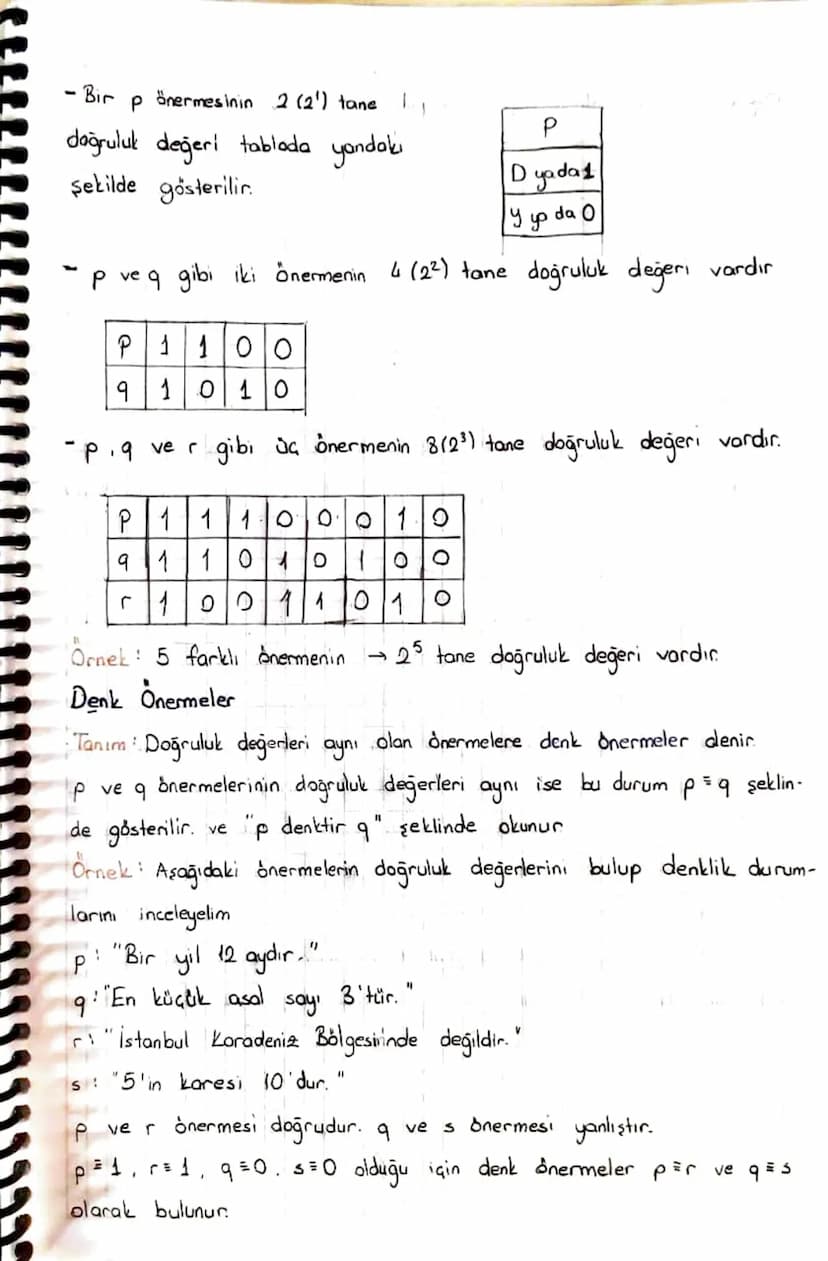 - Bir p önermesinin 2 (2¹) tane
doğruluk değeri tabloda yandaki
şekilde gösterilir.
P
D yada 1
y ya da 0
- p ve q gibi iki önermenin 4 (2²) tane doğruluk değeri vardır
P 1 1 0 0
q 1 0 1 0
- p, q ve r gibi üç önermenin 8(2³) tane doğruluk değeri vardır.
P 1 1 1 0 0 0 1 0
q 1 1 0 1 0 1 0 0
r 1 0 0 1 1 0 1 0
Örnek: 5 farklı önermenin → 2⁵ tane doğruluk değeri vardır.
Denk Önermeler
Tanım: Doğruluk değerleri aynı olan önermelere denk önermeler denir.
p ve q önermelerinin doğruluk değerleri aynı ise bu durum p ≡ q şeklin-
de gösterilir. ve "p denktir q" şeklinde okunur
Örnek: Aşağıdaki önermelerin doğruluk değerlerini bulup denklik durum-
larını inceleyelim
p: "Bir yil 12 aydır."
q: "En küçük asal sayı 3'tür."
r: "İstanbul Karadeniz Bölgesinde değildir."
s: "5'in karesi 10'dur."
p ve r önermesi doğrudur. q ve s önermesi yanlıştır.
p≡1, r≡1, q≡0. s≡0 olduğu için denk önermeler p≡r ve q≡s
olarak bulunur.